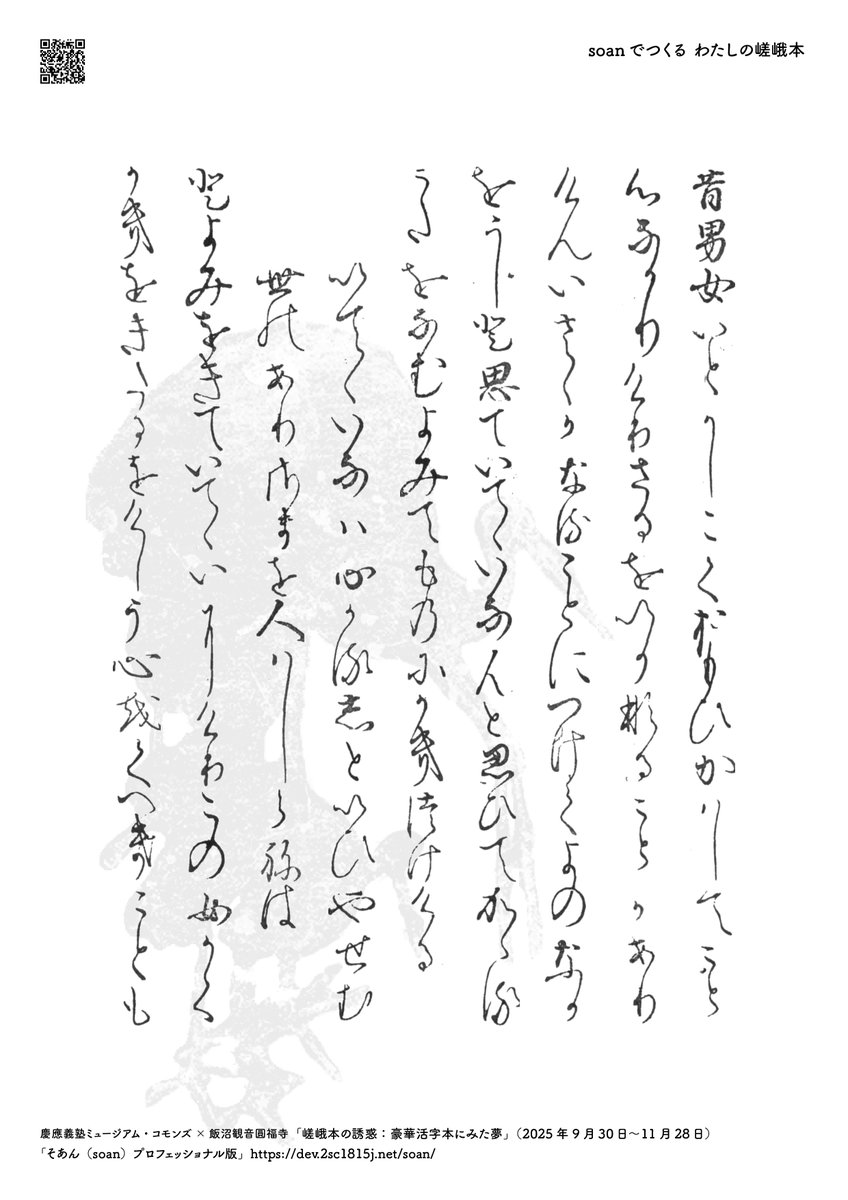 soanでつくる わたしの嵯峨本
昔男女いとかしこくおもひかはしてこと
心なかりけりさるをいかなることかあり
けんいさゝかなることにつけてよのなか
をうしと思ていてゝいなんと思ひてかゝる
うたをなむよみてものにかきつけける
いてゝいなは心かるしといひやせむ
世のありさまを人はしらねは
とよみをきていてゝいにけりこの女かく
かきをきたるをけしう心をくへきことも
慶應義塾ミュージアム・コモンズ × 飯沼観音圓福寺「嵯峨本の誘惑：豪華活字本にみた夢」（2025年9月30日〜11月28日）
「そあん（soan）プロフェッショナル版」https://dev.2sc1815j.net/soan/